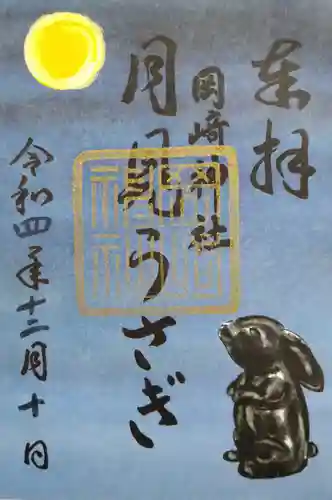 奉拝
岡崎神社
月見うさぎ
令和四年十二月十日